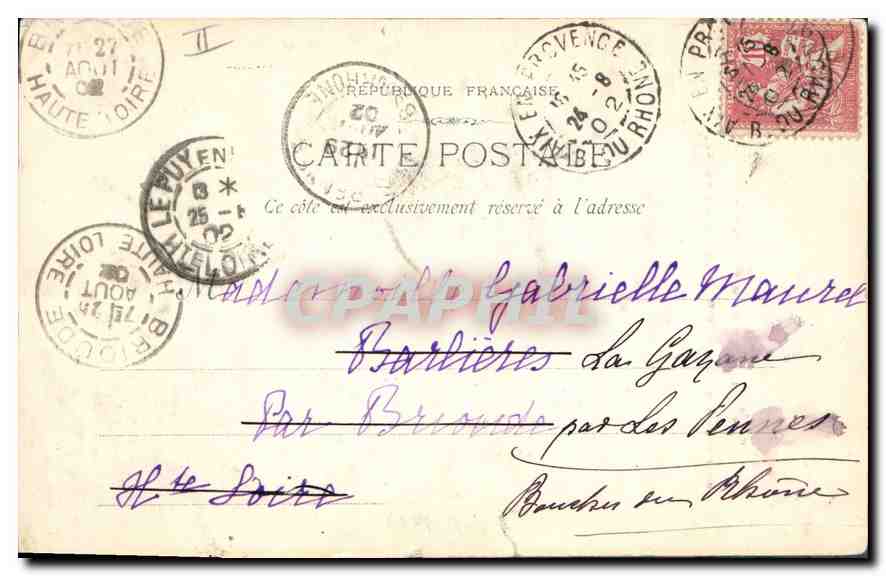 II
RÉPUBLIQUE FRANÇAISE
CARTE POSTALE
Ce côté est exclusivement réservé à l'adresse
Mademoiselle Gabrielle Maurel
Barlières La Gayane
Par Brioude par Les Pennes
Hte Loire Bouches du Rhône
7E 27
AOUT
02
HAUTE LOIRE
LE PUY EN
25
02
HTE LOIRE
BRIOUDE
HAUTE LOIRE
7E 25
AOUT
02
02
AIX EN PROVENCE
15 45
24 -8
02
B. DU RHONE
10
CPAPHIL